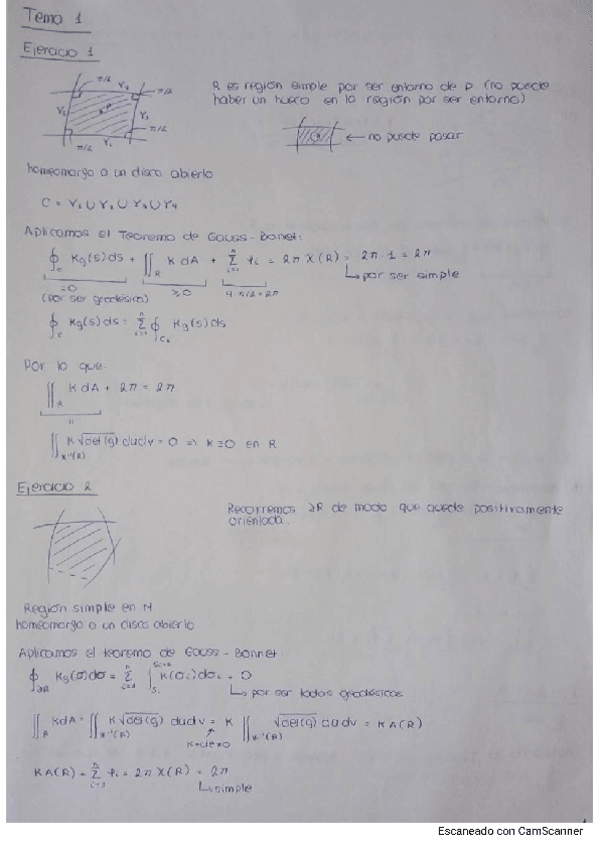 Tema 1
Ejercicio 1
π/2 γ4 π/2
R es región simple por ser entorno de p (no puede
haber un hueco en la región por ser entorno)
γ2 p γ3
π/2 γ1 π/2
← no puede pasar
homeomorfo a un disco abierto
C = γ1 ∪ γ2 ∪ γ3 ∪ γ4
Aplicamos el Teorema de Gauss-Bonnet:
∮_C Kg(s)ds + ∬_R K dA + Σ_{i=1}^{n} φi = 2π χ(R) = 2π·1 = 2π
=0 ≥0 4·π/2=2π ↳ por ser simple
(por ser geodésica)
∮_C Kg(s)ds = Σ_{i=1}^{n} ∮_{Ci} Kg(s)ds
Por lo que:
∬_R K dA + 2π = 2π
∬_{x⁻¹(R)} K√det(g) dudv = 0 ⇒ K≡0 en R
Ejercicio 2
Recorremos ∂R de modo que quede positivamente
orientada.
Región simple en M
homeomorfo a un disco abierto
Aplicamos el teorema de Gauss-Bonnet:
∮_{∂R} Kg(σ)dσ = Σ_{i=1}^{n} ∫ k(σi)dσi = 0
↳ por ser todas geodésicas
∬_R K dA = ∬_{x⁻¹(R)} K√det(g) dudv = K ∬_{x⁻¹(R)} √det(g) dudv = K A(R)
K=cte≠0
K A(R) + Σ_{i=1}^{n} φi = 2π χ(R) = 2π
↳ simple
Escaneado con CamScanner